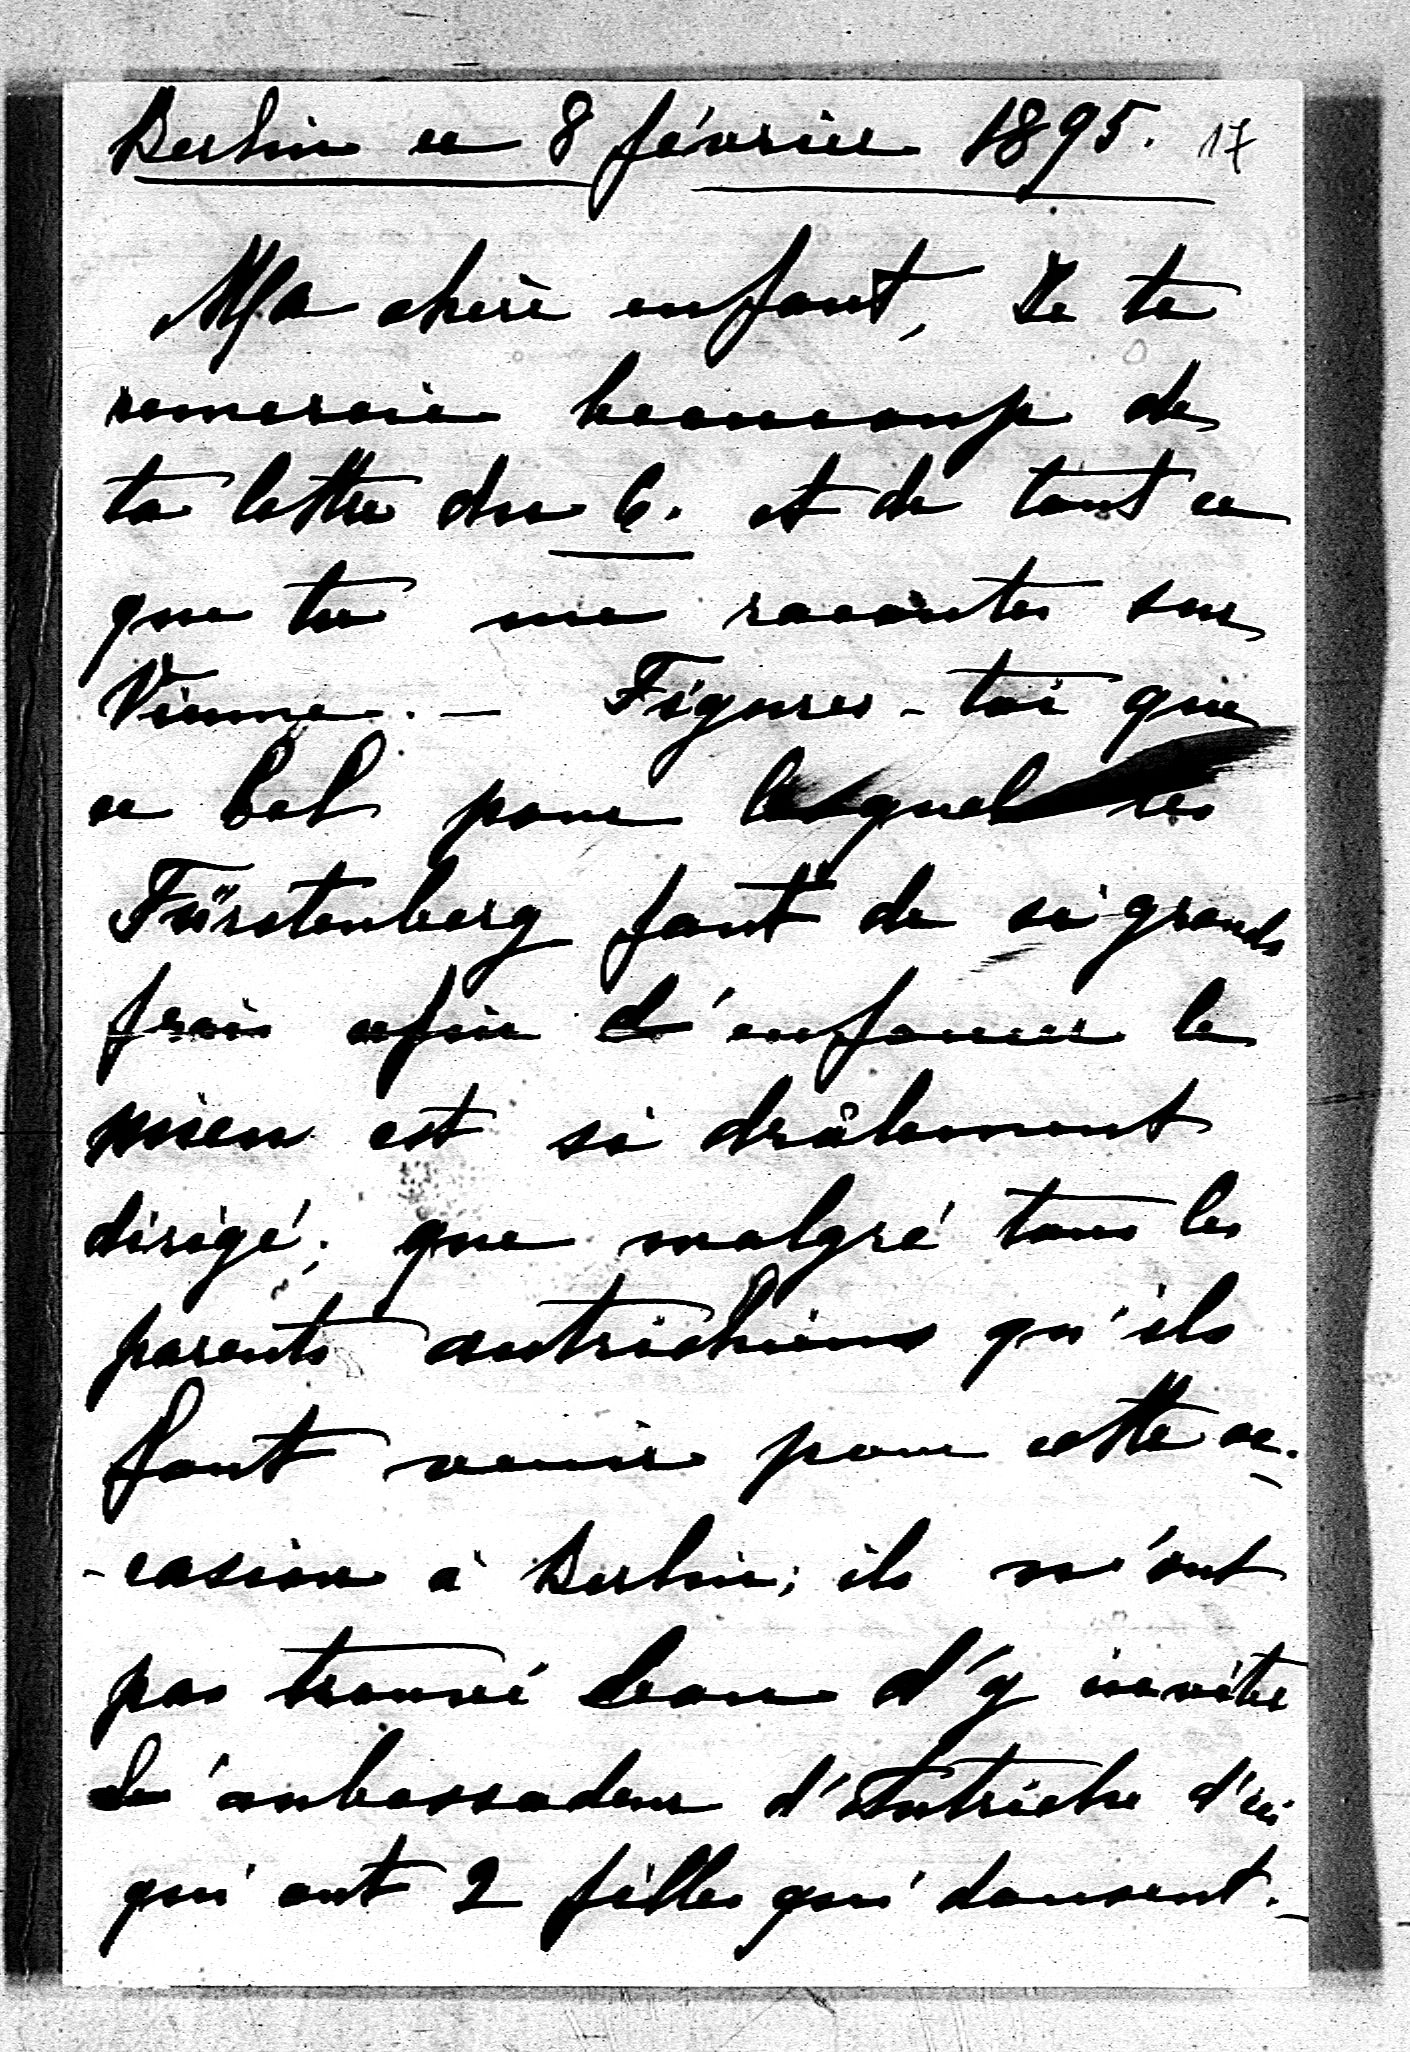 Berlin ce 8 février 1895. 17
Ma chère enfant, Je te
remercie beaucoup de
ta lettre du 6. et de tout ce
que tu me racontes sur
Vienne. — Figures-toi que
ce bal pour lesquel les
Fürstenberg font de si grands
frais afin d'enfoncer le
mien est si drôlement
dirigé; que malgré tous les
parents autrichiens qu'ils
font venir pour cette oc-
-casion à Berlin; ils n'ont
pas trouvé bon d'y inviter
l'ambassadeur d'Autriche d'ici
qui ont 2 filles qui dansent. —